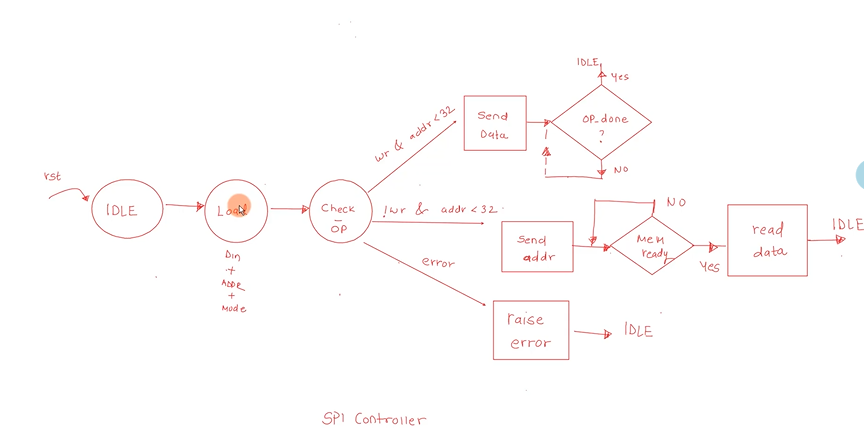 rst
IDLE
Load
Din
+
ADDR
+
Mode
Check
_
OP
wr & addr < 32
Send
Data
OP_done
?
Yes
IDLE
NO
!wr & addr < 32
Send
addr
Mem
ready
NO
Yes
read
data
IDLE
error
raise
error
IDLE
SPI Controller